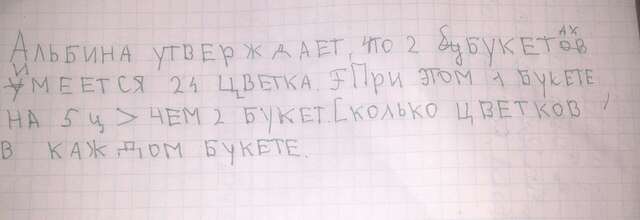 Альбина утверждает, что 2 букетах
имеется 24 цветка. При этом 1 букете
на 5 ц > чем 2 букет. Сколько цветков
в каждом букете.